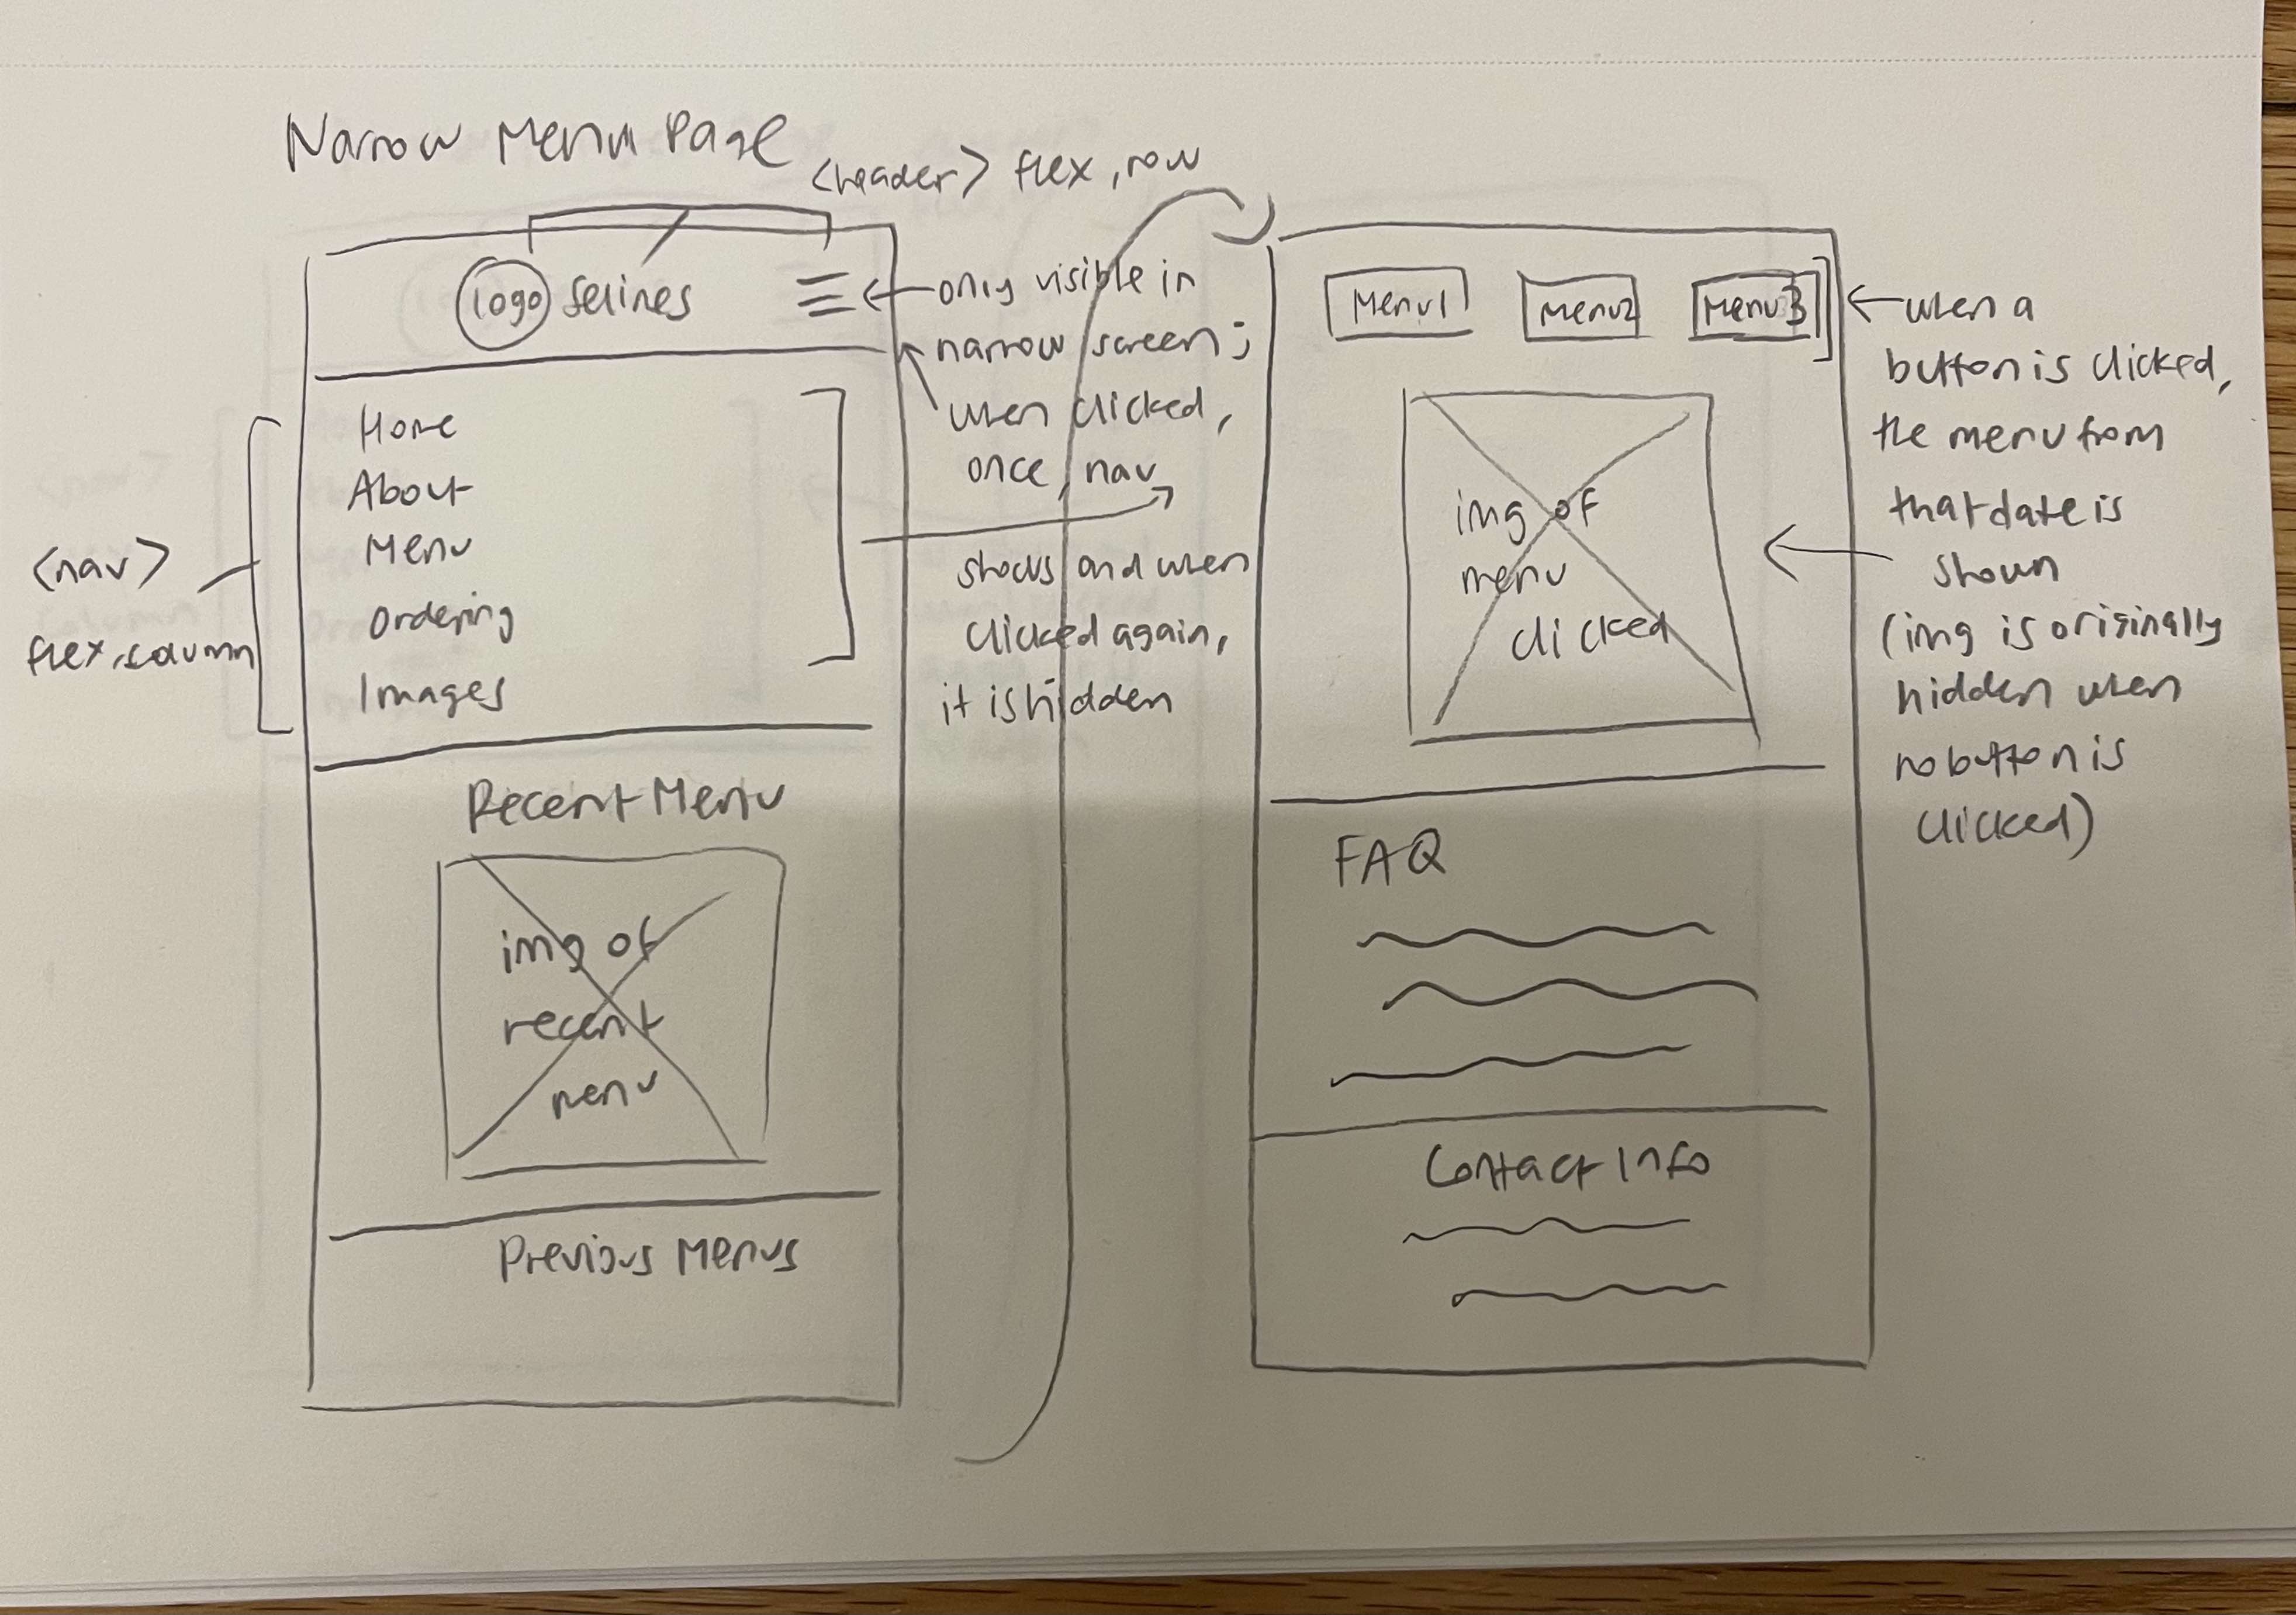 Narrow Menu Page
<header> flex, row
logo felines
only visible in
narrow screen;
when clicked,
once, nav
shows and when
clicked again,
it is hidden
<nav>
flex, column
Home
About
Menu
Ordering
Images
Recent Menu
img of
recent
menu
Previous Menus
Menu1 Menu2 Menu3
when a
button is clicked,
the menu from
that date is
shown
(img is originally
hidden when
no button is
clicked)
img of
menu
clicked
FAQ
Contact Info